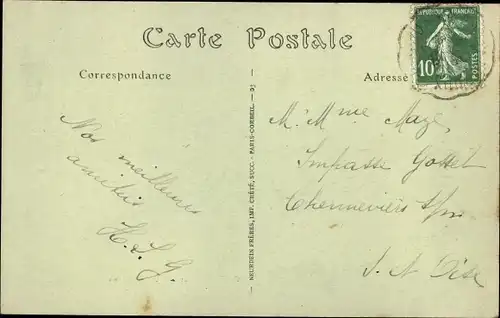 Carte Postale
Correspondance
Adresse
REPUBLIQUE FRANÇAISE
10c
POSTES
Nos meilleures
amitiés
H. L. G.
NEURDEIN FRÈRES, IMP. CRÉTÉ, SUCC. - PARIS-CORBEIL.
M. Mme Mazé
Impasse
Chennevières s/
S. et Oise